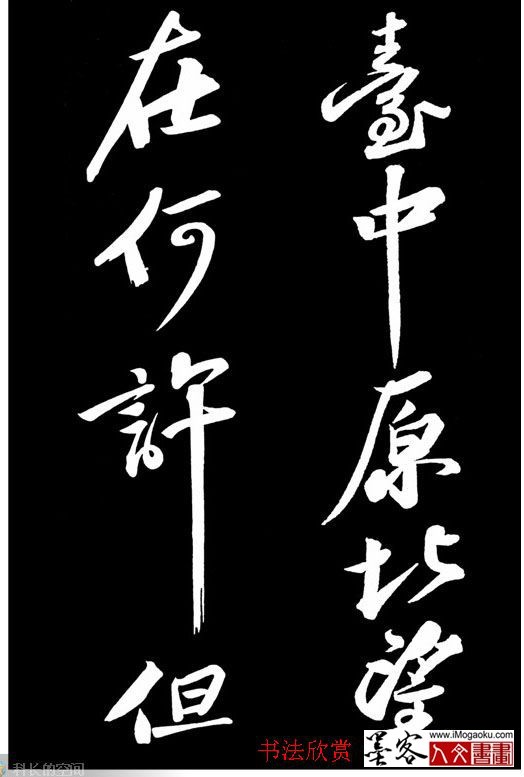 臺中原北望
在何許但
书法欣赏
墨客
www.iMogaoku.com
人文書畫
科长的空间